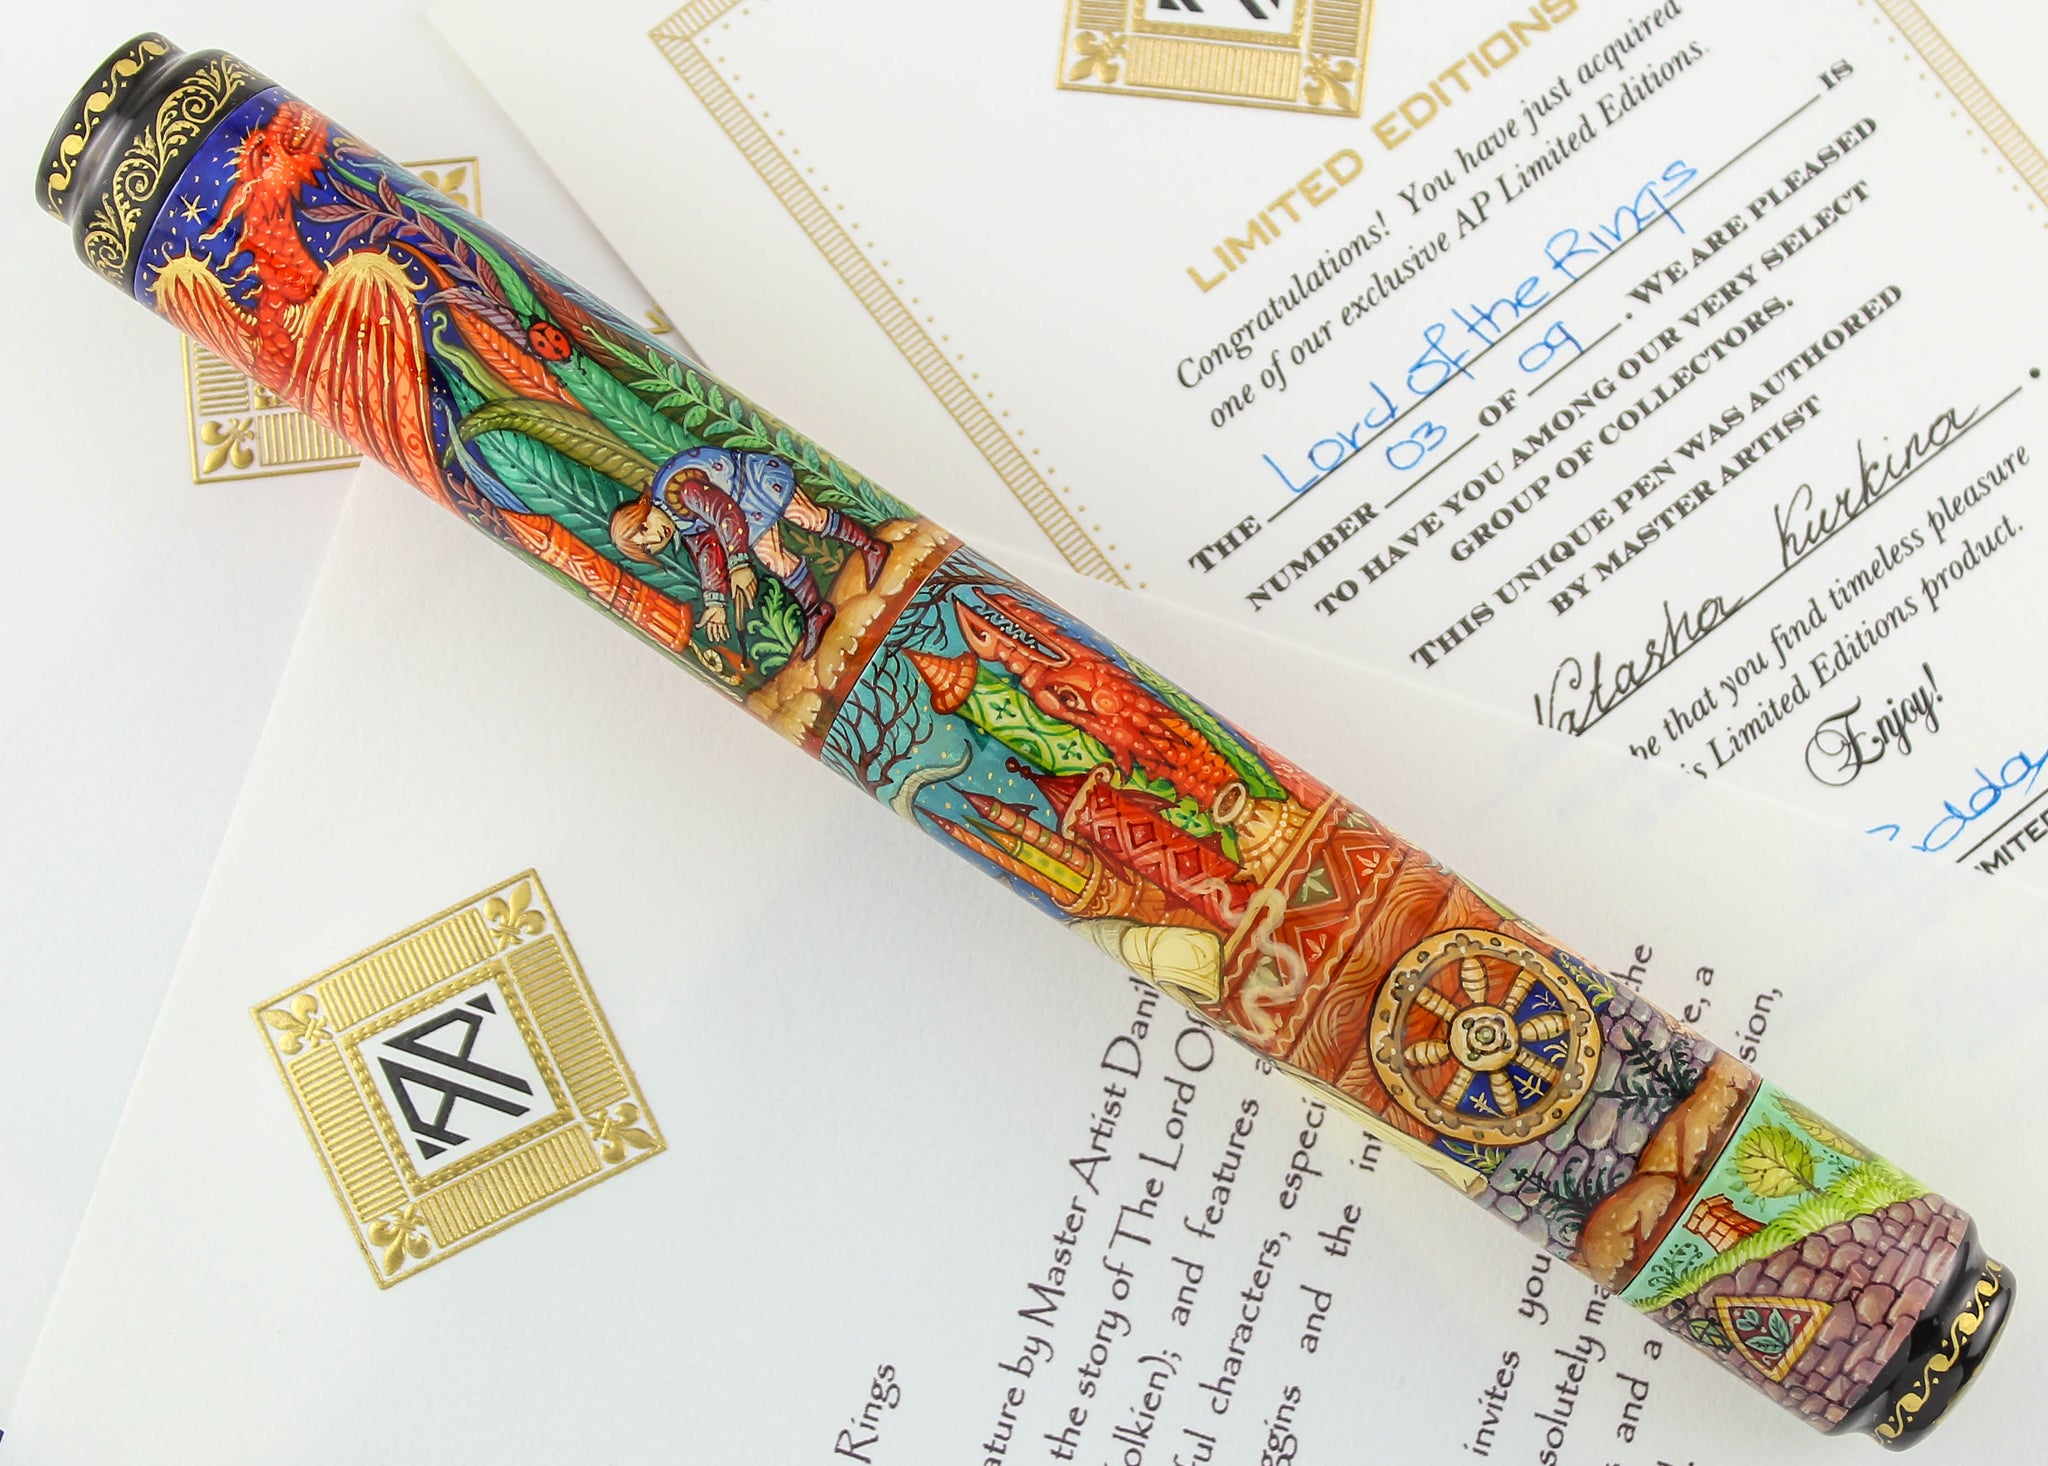 LIMITED EDITIONS
Congratulations! You have just acquired
one of our exclusive AP Limited Editions.
THE Lord of the Rings IS
NUMBER 03 OF 09. WE ARE PLEASED
TO HAVE YOU AMONG OUR VERY SELECT
GROUP OF COLLECTORS.
THIS UNIQUE PEN WAS AUTHORED
BY MASTER ARTIST
Natasha Kurkina.
be that you find timeless pleasure
Limited Editions product.
Enjoy!
AP
Rings
ature by Master Artist Dani
the story of The Lord O
olkien); and features a
ful characters, especi
ggins and the in
invites you
solutely ma
and a
the
, a
sion,